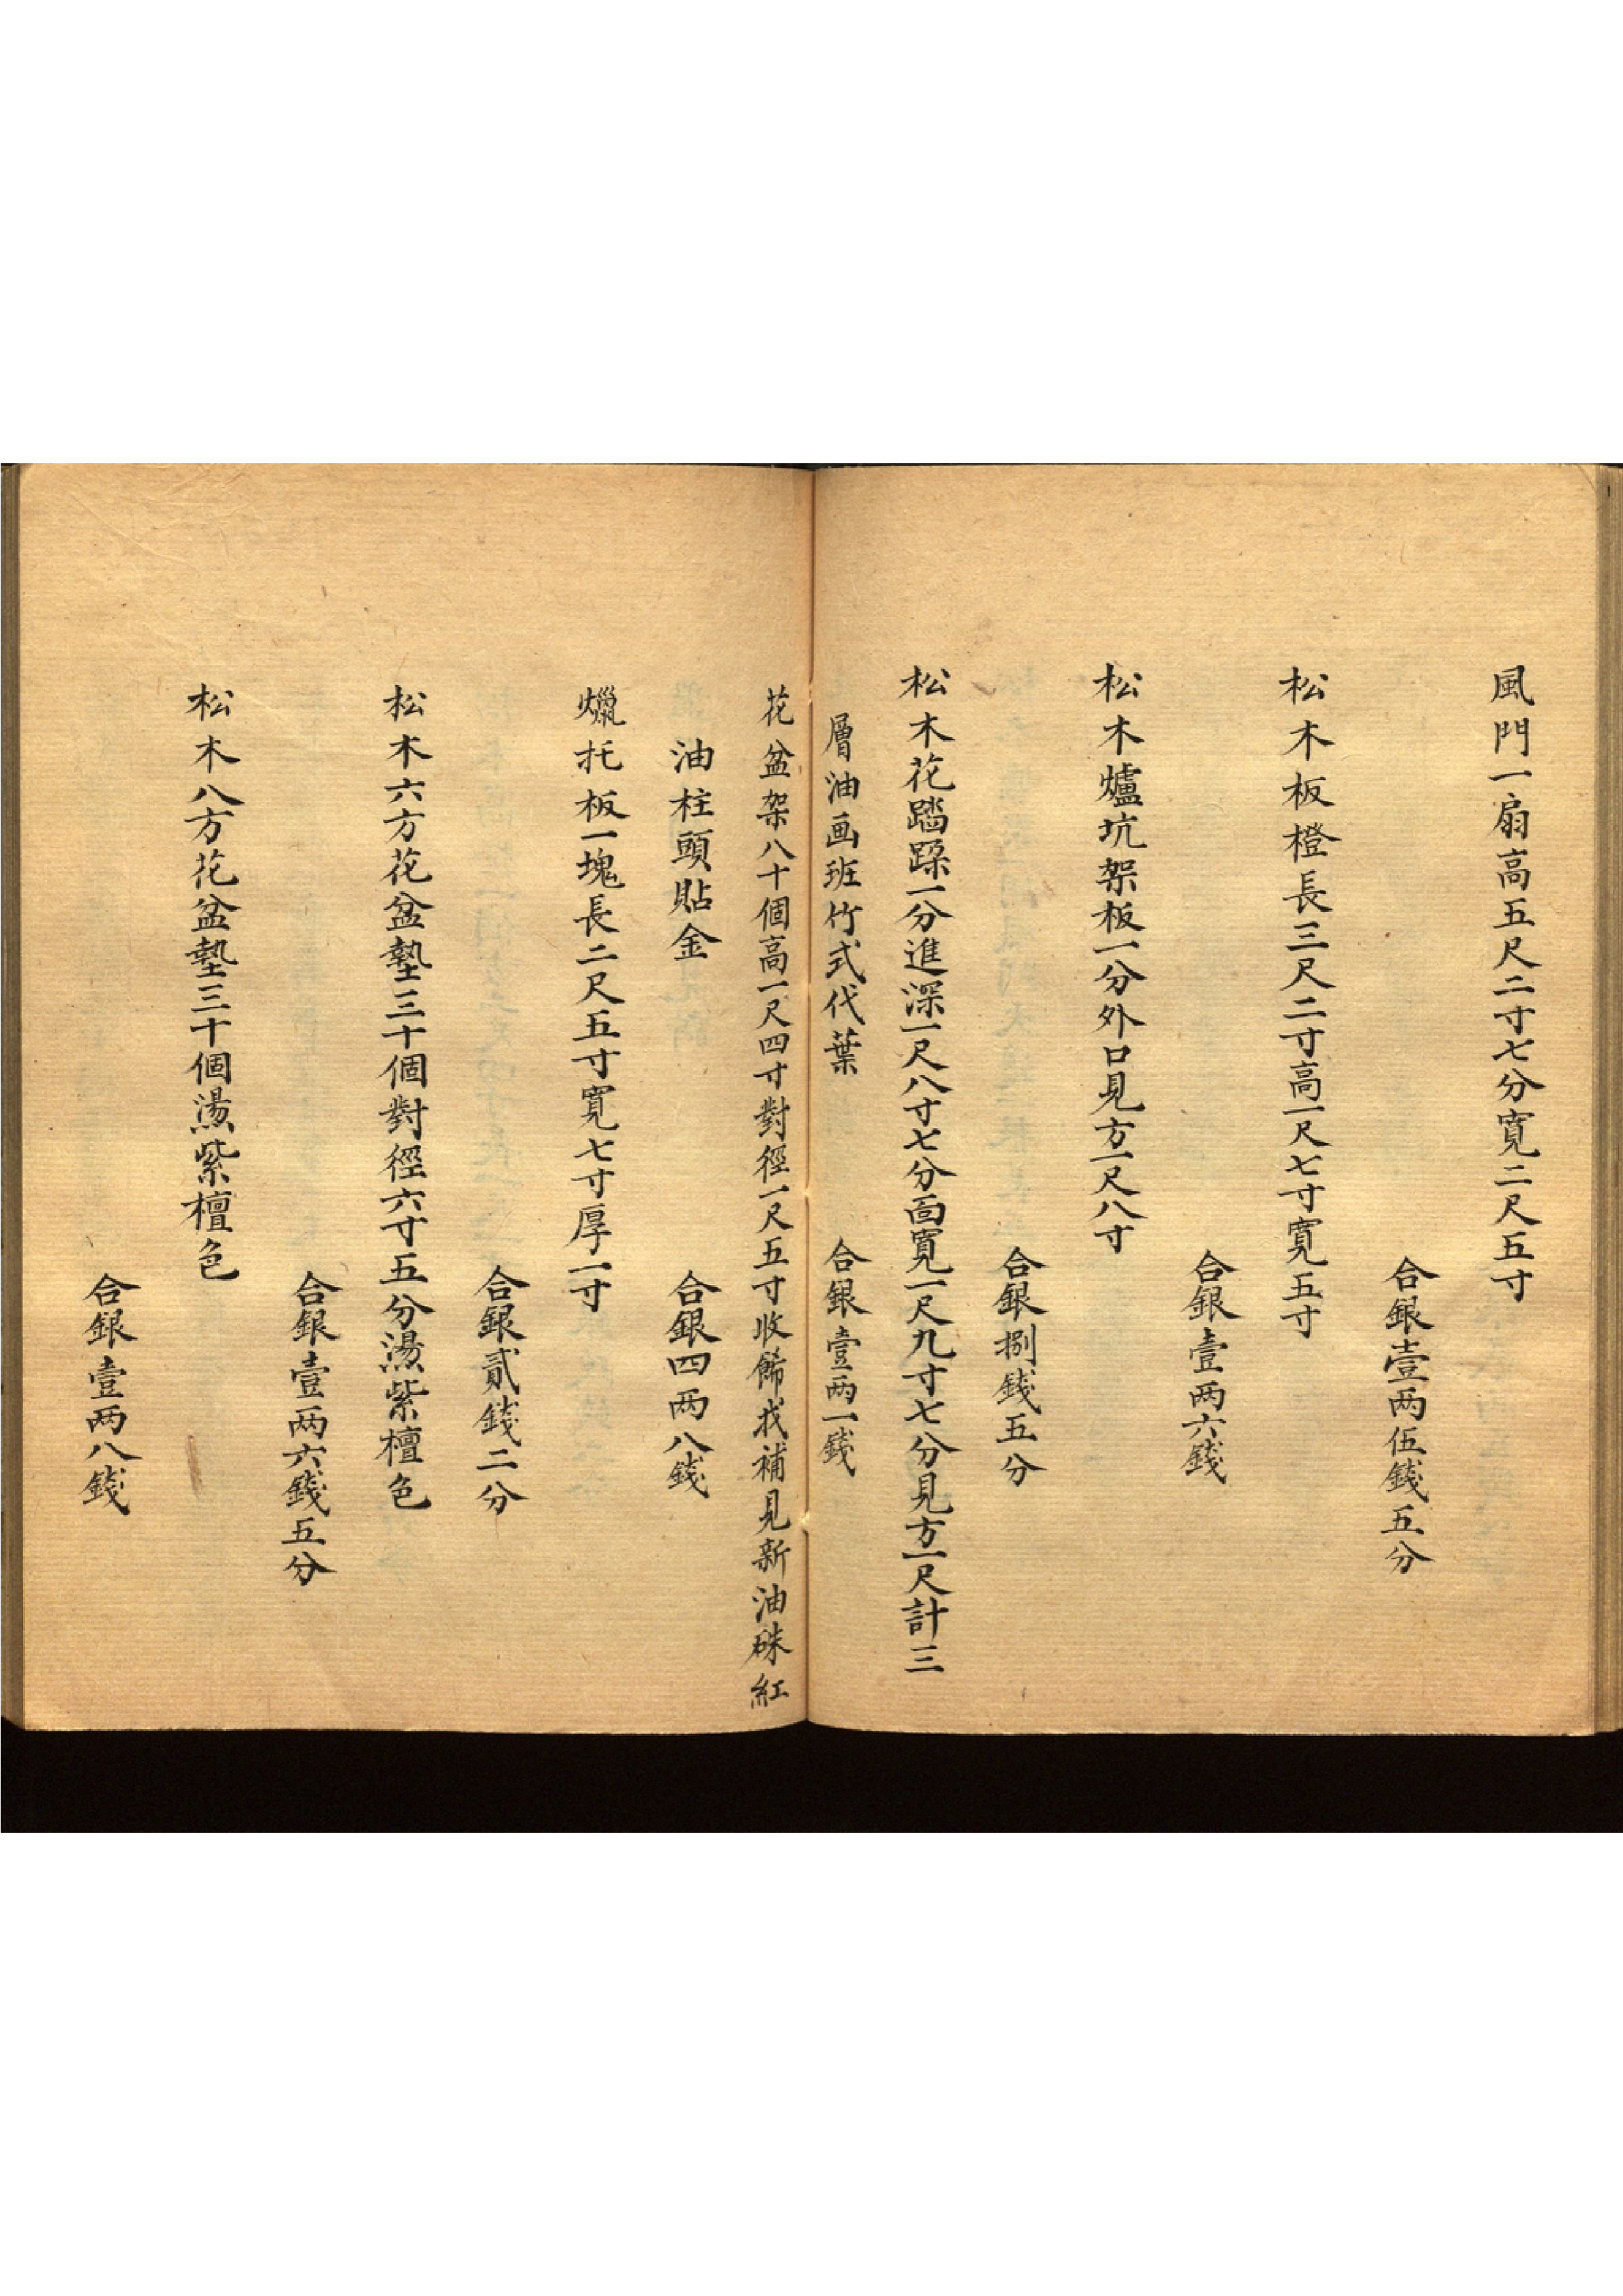 風門一扇高五尺二寸七分寬二尺五寸
合銀壹两伍錢五分
松木板橙長三尺二寸高一尺七寸寬五寸
合銀壹两六錢
松木爐坑架板一分外口見方一尺八寸
合銀捌錢五分
松木花踏跺一分進深一尺八寸七分面寬一尺九寸七分見方一尺計三
層油画班竹式代葉
合銀壹两一錢
花盆架八十個高一尺四寸對徑一尺五寸收餙找補見新油硃紅
油柱頭貼金
合銀四两八錢
爉托板一塊長二尺五寸寬七寸厚一寸
合銀貳錢二分
松木六方花盆墊三十個對徑六寸五分燙紫檀色
合銀壹两六錢五分
松木八方花盆墊三十個燙紫檀色
合銀壹两八錢